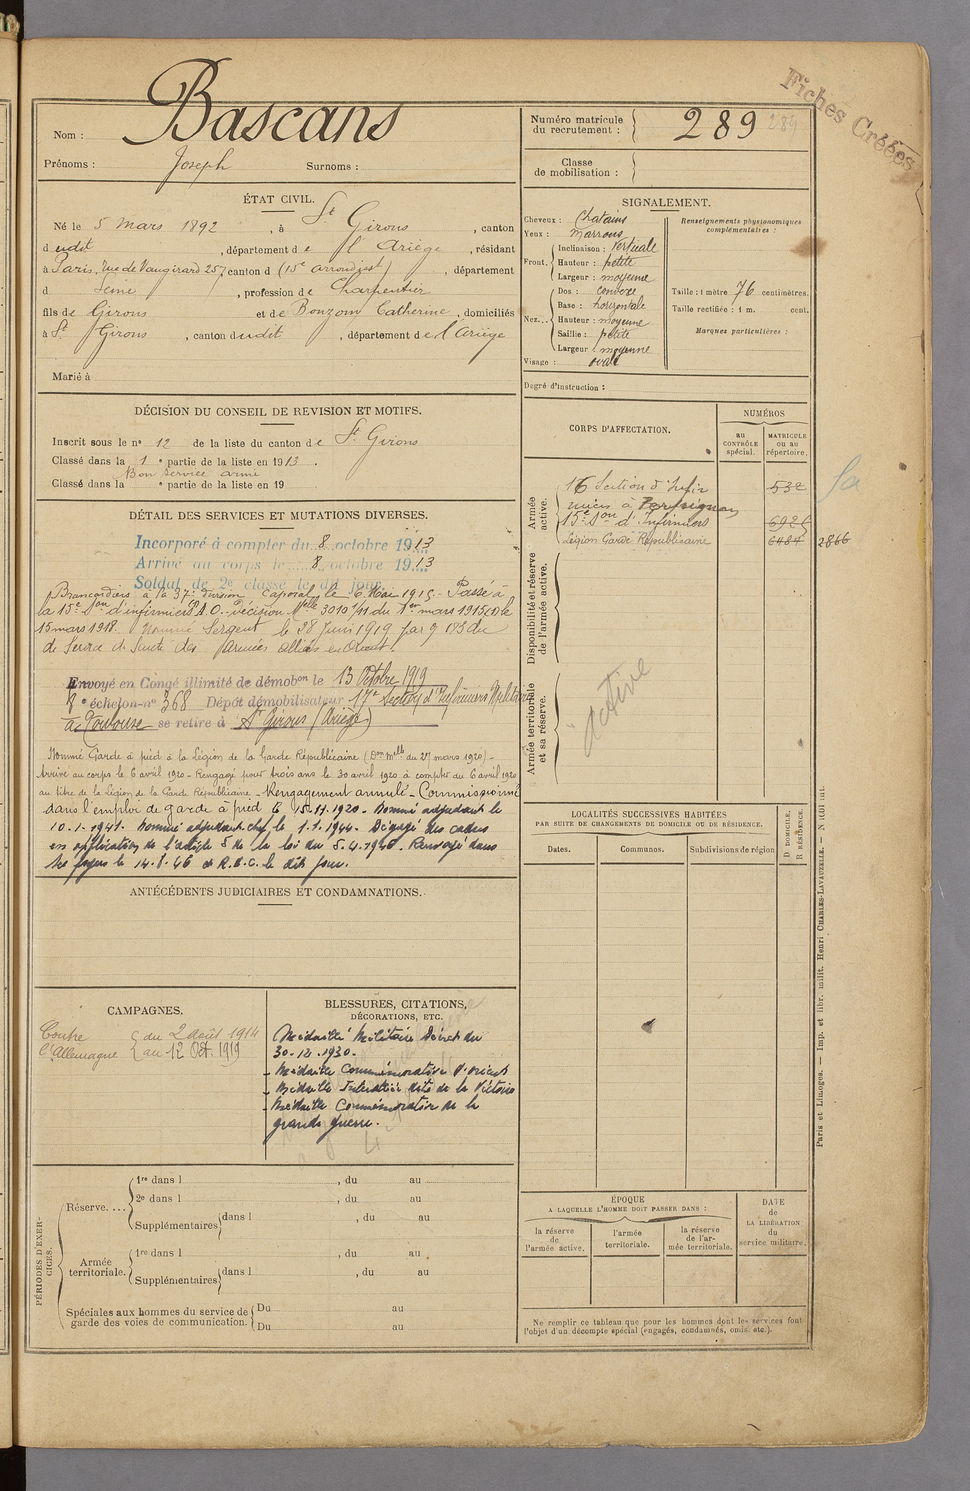 Fiches Créées
Nom : Bascans
Prénoms : Joseph Surnoms :
Numéro matricule du recrutement : 289 289
Classe de mobilisation :
ÉTAT CIVIL.
Né le 5 mars 1892, à St Girons, canton
d udit, département de l'Ariège, résidant
à Paris, rue de Vaugirard 257, canton d (15e arrondisst), département
d Seine, profession de Charpentier
fils de Girons et de Bonzom Catherine, domiciliés
à St Girons, canton dudit, département de l'Ariège
Marié à
SIGNALEMENT.
Cheveux : Chatains
Yeux : marrons
Front. Inclinaison : verticale
Hauteur : petite
Largeur : moyenne
Nez... Dos : convexe
Base : horizontale
Hauteur : moyenne
Saillie : petite
Largeur : moyenne
Visage : ovale
Renseignements physionomiques complémentaires :
Taille : 1 mètre 76 centimètres.
Taille rectifiée : 1 m. cent.
Marques particulières :
Degré d'instruction :
DÉCISION DU CONSEIL DE REVISION ET MOTIFS.
Inscrit sous le no 12 de la liste du canton de St Girons
Classé dans la 1e partie de la liste en 1913.
Bon service armé
Classé dans la e partie de la liste en 19
DÉTAIL DES SERVICES ET MUTATIONS DIVERSES.
Incorporé à compter du 8 octobre 1913
Arrivé au corps le 8 octobre 1913
Soldat de 2e classe le dit jour
Brancardiers à la 37e Division Caporal, le 6 Mai 1915 - Passé à
la 15e Son d'infirmiers A.O. - Décision Melle 3010 1/11 du 1er mars 1915
15 mars 1918. Nommé Sergent le 28 Juin 1919 par 183 du
Armées alliées en Orient.
Envoyé en Congé illimité de démobon le 13 Octobre 1919
échelon - no 368 Dépôt démobilisateur 17e Section d'Infirmiers Militaires
à Toulouse se retire à St Girons (Ariège)
Nommé Garde à pied à la Légion de la Garde Républicaine (Don Melle du 27 mars 1920) -
Arrivé au corps le 6 avril 1920 - Rengagé pour trois ans le 30 avril 1920 à compter du 6 avril 1920
au titre de la Légion de la Garde Républicaine - Rengagement annulé - Commissionné
dans l'emploi de garde à pied le 15.11.1920 - Nommé adjudant le
10.1.1941. Nommé adjudant-chef le 1.1.1944. Dégagé des cadres
en application de l'article 5 de la loi du 5.4.1946. Renvoyé dans
ses foyers le 14.8.46 et R.D.C. le dit jour.
ANTÉCÉDENTS JUDICIAIRES ET CONDAMNATIONS.
CAMPAGNES.
Contre l'Allemagne du 2 Août 1914
au 12 Oct. 1919
BLESSURES, CITATIONS, DÉCORATIONS, ETC.
Médaille Militaire Décret du
30-12-1930.
- Médaille Commémorative d'Orient
- Médaille Interalliée dite de la Victoire
- Médaille Commémorative de la
grande guerre.
PÉRIODES D'EXERCICES.
Réserve.... 1re dans l , du au
2e dans l , du au
Supplémentaires dans l , du au
Armée territoriale. 1re dans l , du au
Supplémentaires dans l , du au
Spéciales aux hommes du service de garde des voies de communication. Du au
Du au
CORPS D'AFFECTATION.
NUMÉROS
au CONTRÔLE spécial.
MATRICULE ou au répertoire.
Armée active.
16 Section d'Infirmiers à Perpignan 532
15e Son d'Infirmiers 6926
Légion Garde Républicaine 6484 2866
Disponibilité et réserve de l'armée active.
Armée territoriale et sa réserve.
active
LOCALITÉS SUCCESSIVES HABITÉES
PAR SUITE DE CHANGEMENTS DE DOMICILE OU DE RÉSIDENCE.
Dates. Communes. Subdivisions de région
D. DOMICILE. R. RÉSIDENCE.
ÉPOQUE
A LAQUELLE L'HOMME DOIT PASSER DANS :
la réserve de l'armée active.
l'armée territoriale.
la réserve de l'armée territoriale.
DATE de LA LIBÉRATION du service militaire.
Ne remplir ce tableau que pour les hommes dont les services font
l'objet d'un décompte spécial (engagés, condamnés, omis, etc.).
Paris et Limoges. — Imp. et libr. milit. Henri CHARLES-LAVAUZELLE.